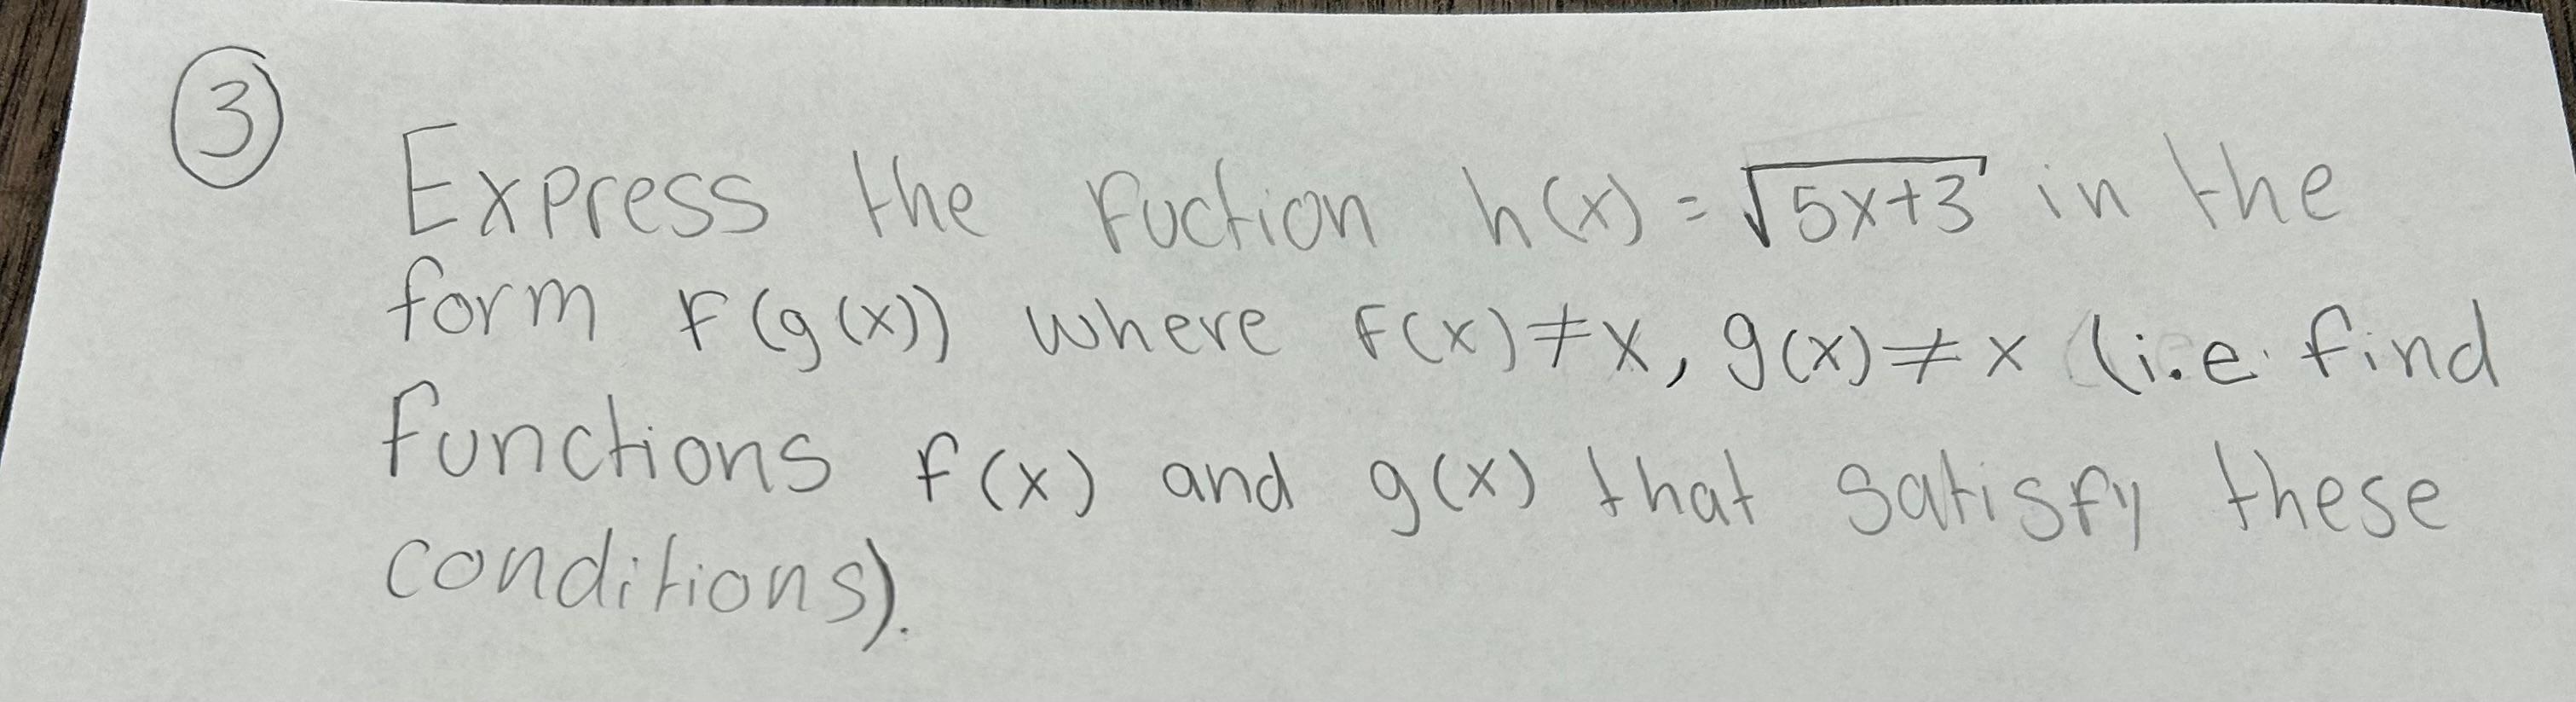 3
Express the fuction h(x) = √5x+3 in the
form f(g(x)) where f(x)≠x, g(x)≠x (i.e. find
functions f(x) and g(x) that satisfy these
conditions).